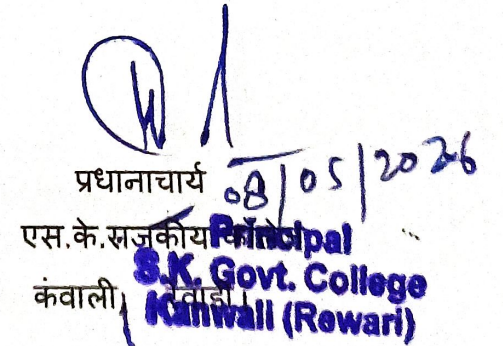 प्रधानाचार्य
08/05/2026
एस.के.राजकीय
Principal
कंवाली,
S.K. Govt. College
Kanwali (Rewari)